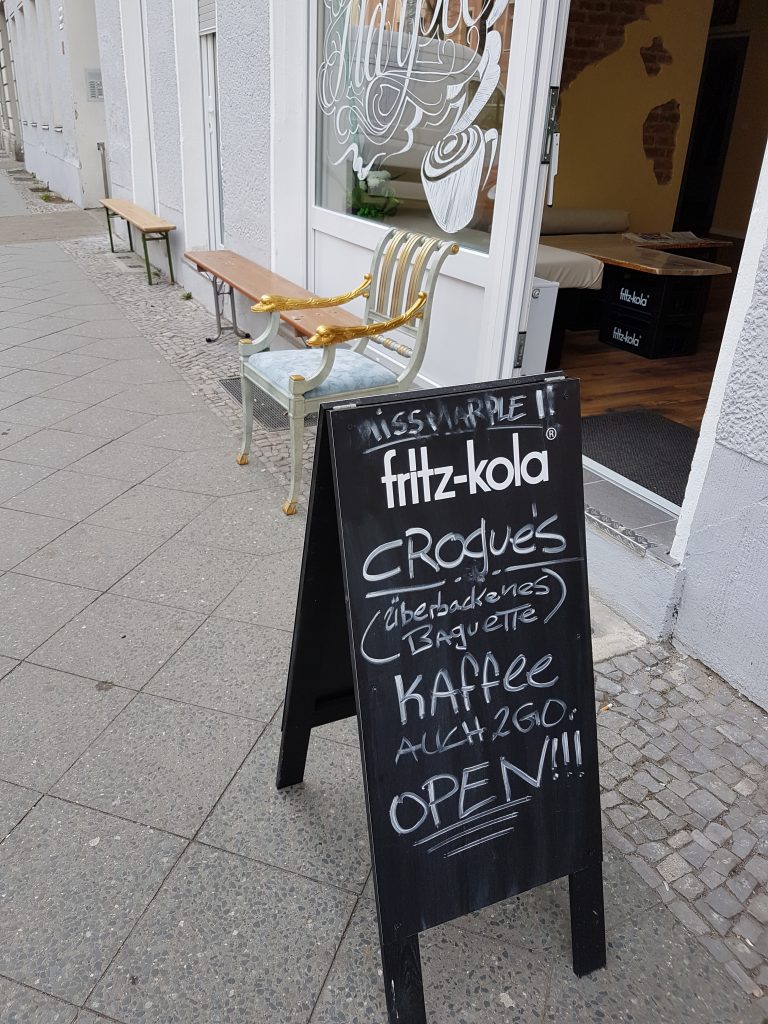 MISS MARPLE !!
fritz-kola®
CROQUE'S
(überbackenes
BAGUETTE)
KAffee
AUCH 2GO.
OPEN!!!
fritz-kola®
fritz-kola®